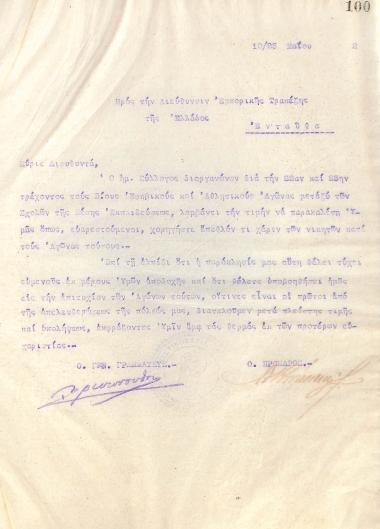 100
10/23 Μαΐου 2
Πρὸς τὴν Διεύθυνσιν Ἐμπορικῆς Τραπέζης
τῆς Ἑλλάδος
Ἐνταῦθα
Κύριε Διευθυντά,
Ὁ ἡμ. Σύλλογος διοργανώνων διὰ τὴν 28ην καὶ 29ην
τρέχοντος τοὺς Ἐφηβικοὺς καὶ Ἀθλητικοὺς Ἀγῶνας μεταξὺ τῶν
Σχολῶν τῆς Μέσης Ἐκπαιδεύσεως, λαμβάνει τὴν τιμὴν νὰ παρακαλέσῃ Ὑ-
μᾶς ὅπως, εὐαρεστούμενοι, χορηγήσητε ἔπαθλόν τι χάριν τῶν νικητῶν κατὰ
τοὺς Ἀγῶνας τούτους.-
Ἐπὶ τῇ ἐλπίδι ὅτι ἡ παράκλησίς μας αὕτη θέλει τύχει
εὐμενοῦς ἐκ μέρους Ὑμῶν ὑποδοχῆς καὶ ὅτι θέλετε ὑποβοηθήσει ἡμᾶς
εἰς τὴν ἐπιτυχίαν τῶν Ἀγώνων τούτων, οἵτινες εἶναι οἱ πρῶτοι ἀπὸ
τῆς ἀπελευθερώσεως τῆς πόλεώς μας, διατελοῦμεν μετὰ πλείστης τιμῆς
καὶ ὑπολήψεως, ἐκφράζοντες Ὑμῖν τὰς θερμάς ἐκ τῶν προτέρων εὐ-
χαριστίας.-
Ο. ΓΕΝ. ΓΡΑΜΜΑΤΕΥΣ.- Ο. ΠΡΟΕΔΡΟΣ.-